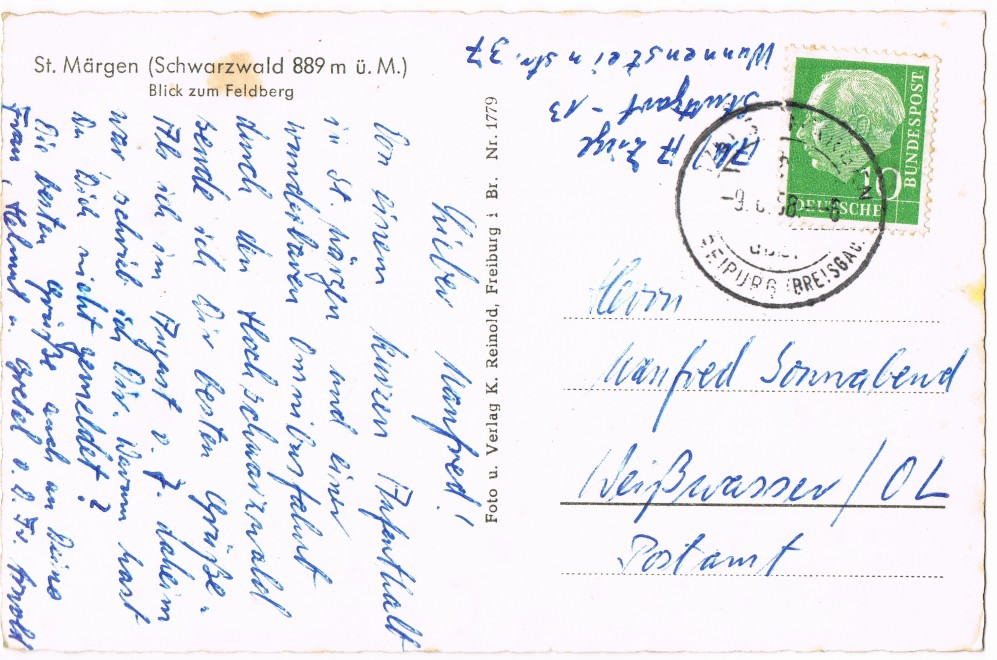 St. Märgen (Schwarzwald 889 m ü. M.)
Blick zum Feldberg
Lieber Manfred!
Von einem kurzen Aufenthalt
in St. Märgen und einer
wunderbaren Omnibusfahrt
durch den Hochschwarzwald
sende ich Dir besten Grüße.
Als ich im August v. J. daheim
war schrieb ich Dir. Warum hast
Du Dich nicht gemeldet?
Die besten Grüße auch an Deine
Frau, Helmut u. Gretel v. D. Fr.
Foto u. Verlag K. Reinold, Freiburg i Br. Nr. 1779
Abs. A
Stuttgart - 13
Wunnensteinstr. 37
DEUTSCHE
BUNDESPOST
10
-9. 58.- 6
FREIBURG (BREISGAU)
Herrn
Manfred Sonnabend
Weißwasser / OL
Postamt